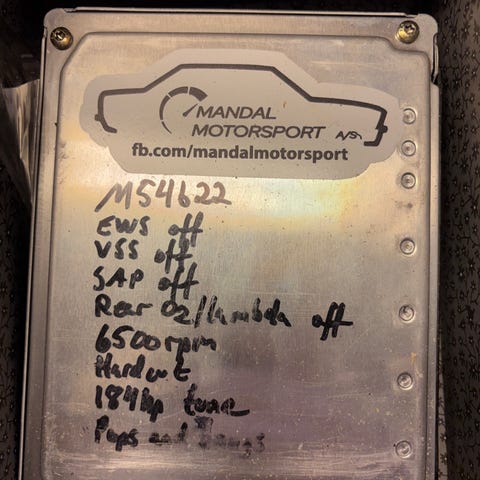 MANDAL
MOTORSPORT A/S
fb.com/mandalmotorsport
M54b22
EWS off
VSS off
SAP off
Rear O2/lambda off
6500rpm
Hardcut
184hp tune
Pops and Bangs